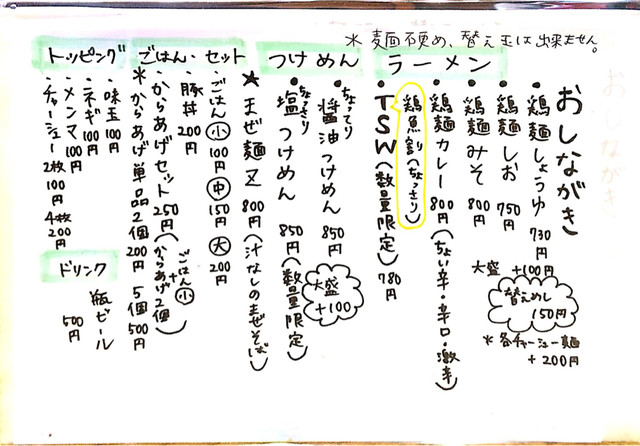 ＊麺硬め、替え玉は出来ません。
おしながき
ラーメン
・鶏麺しょうゆ 730円
・鶏麺しお 750円
・鶏麺みそ 800円
・鶏麺カレー 800円(ちょい辛・辛口・激辛)
・TSW(数量限定) 780円
鶏魚割(ちょっさり)
大盛 +100円
替えめし 150円
＊各チャーシュー麺 +200円
つけめん
ちょってり
・醤油つけめん 850円
ちょっさり
・塩つけめん 850円(数量限定)
大盛 +100
★まぜ麺Z 800円(汁なしのまぜそば)
ごはん・セット
・ごはん 小 100円 中 150円 大 200円
・豚丼 200円
・からあげセット 250円(からあげ2個+ごはん小)
＊からあげ単品 2個200円 5個500円
トッピング
・味玉 100円
・ネギ 100円
・メンマ 100円
・チャーシュー 2枚100円 4枚200円
ドリンク
瓶ビール 500円